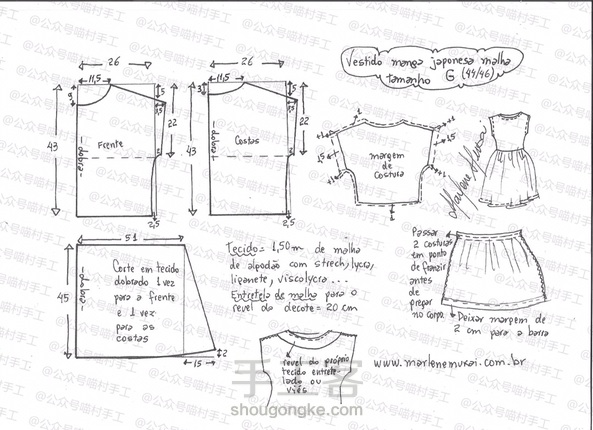 Vestido manga japonesa malha
tamanho G (44/46)
26
11,5
9
5
22
43
Frente
dobra
2,5
26
11,5
3
5
22
43
Costas
dobra
2,5
margem
de
costura
1,5
1,5
Marlene Mukai
51
45
dobra
Corte em tecido
dobrado 1 vez
para a frente
e 1 vez
para as
costas
2
15
Tecido = 1,50m de malha
de algodão com strech, lycra,
liganete, viscolycra ...
Entretela de malha para o
revel do decote = 20 cm
revel do próprio
tecido entrete-
lado ou
viés
Passar
2 costuras
em ponto
de franzir
antes
de
pregar
no corpo.
Deixar margem de
2 cm para a barra
www.marlenemukai.com.br
手工客
shougongke.com
@公众号喵村手工